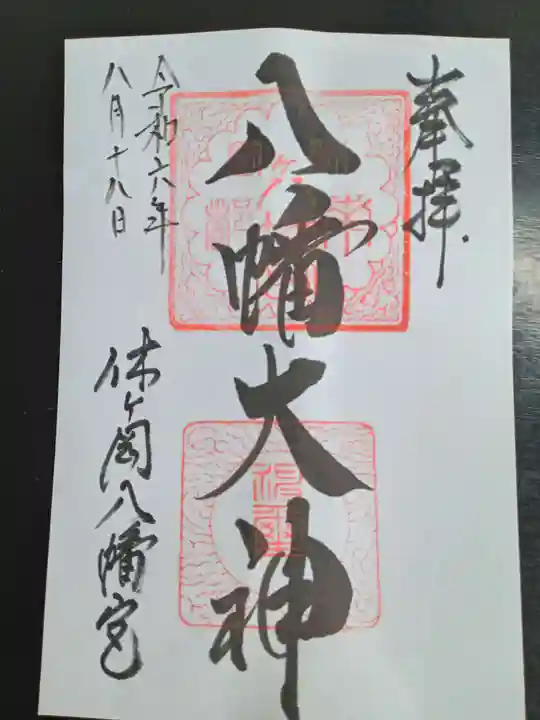 奉拝
八幡大神
令和六年
八月十八日
休ヶ岡八幡宮